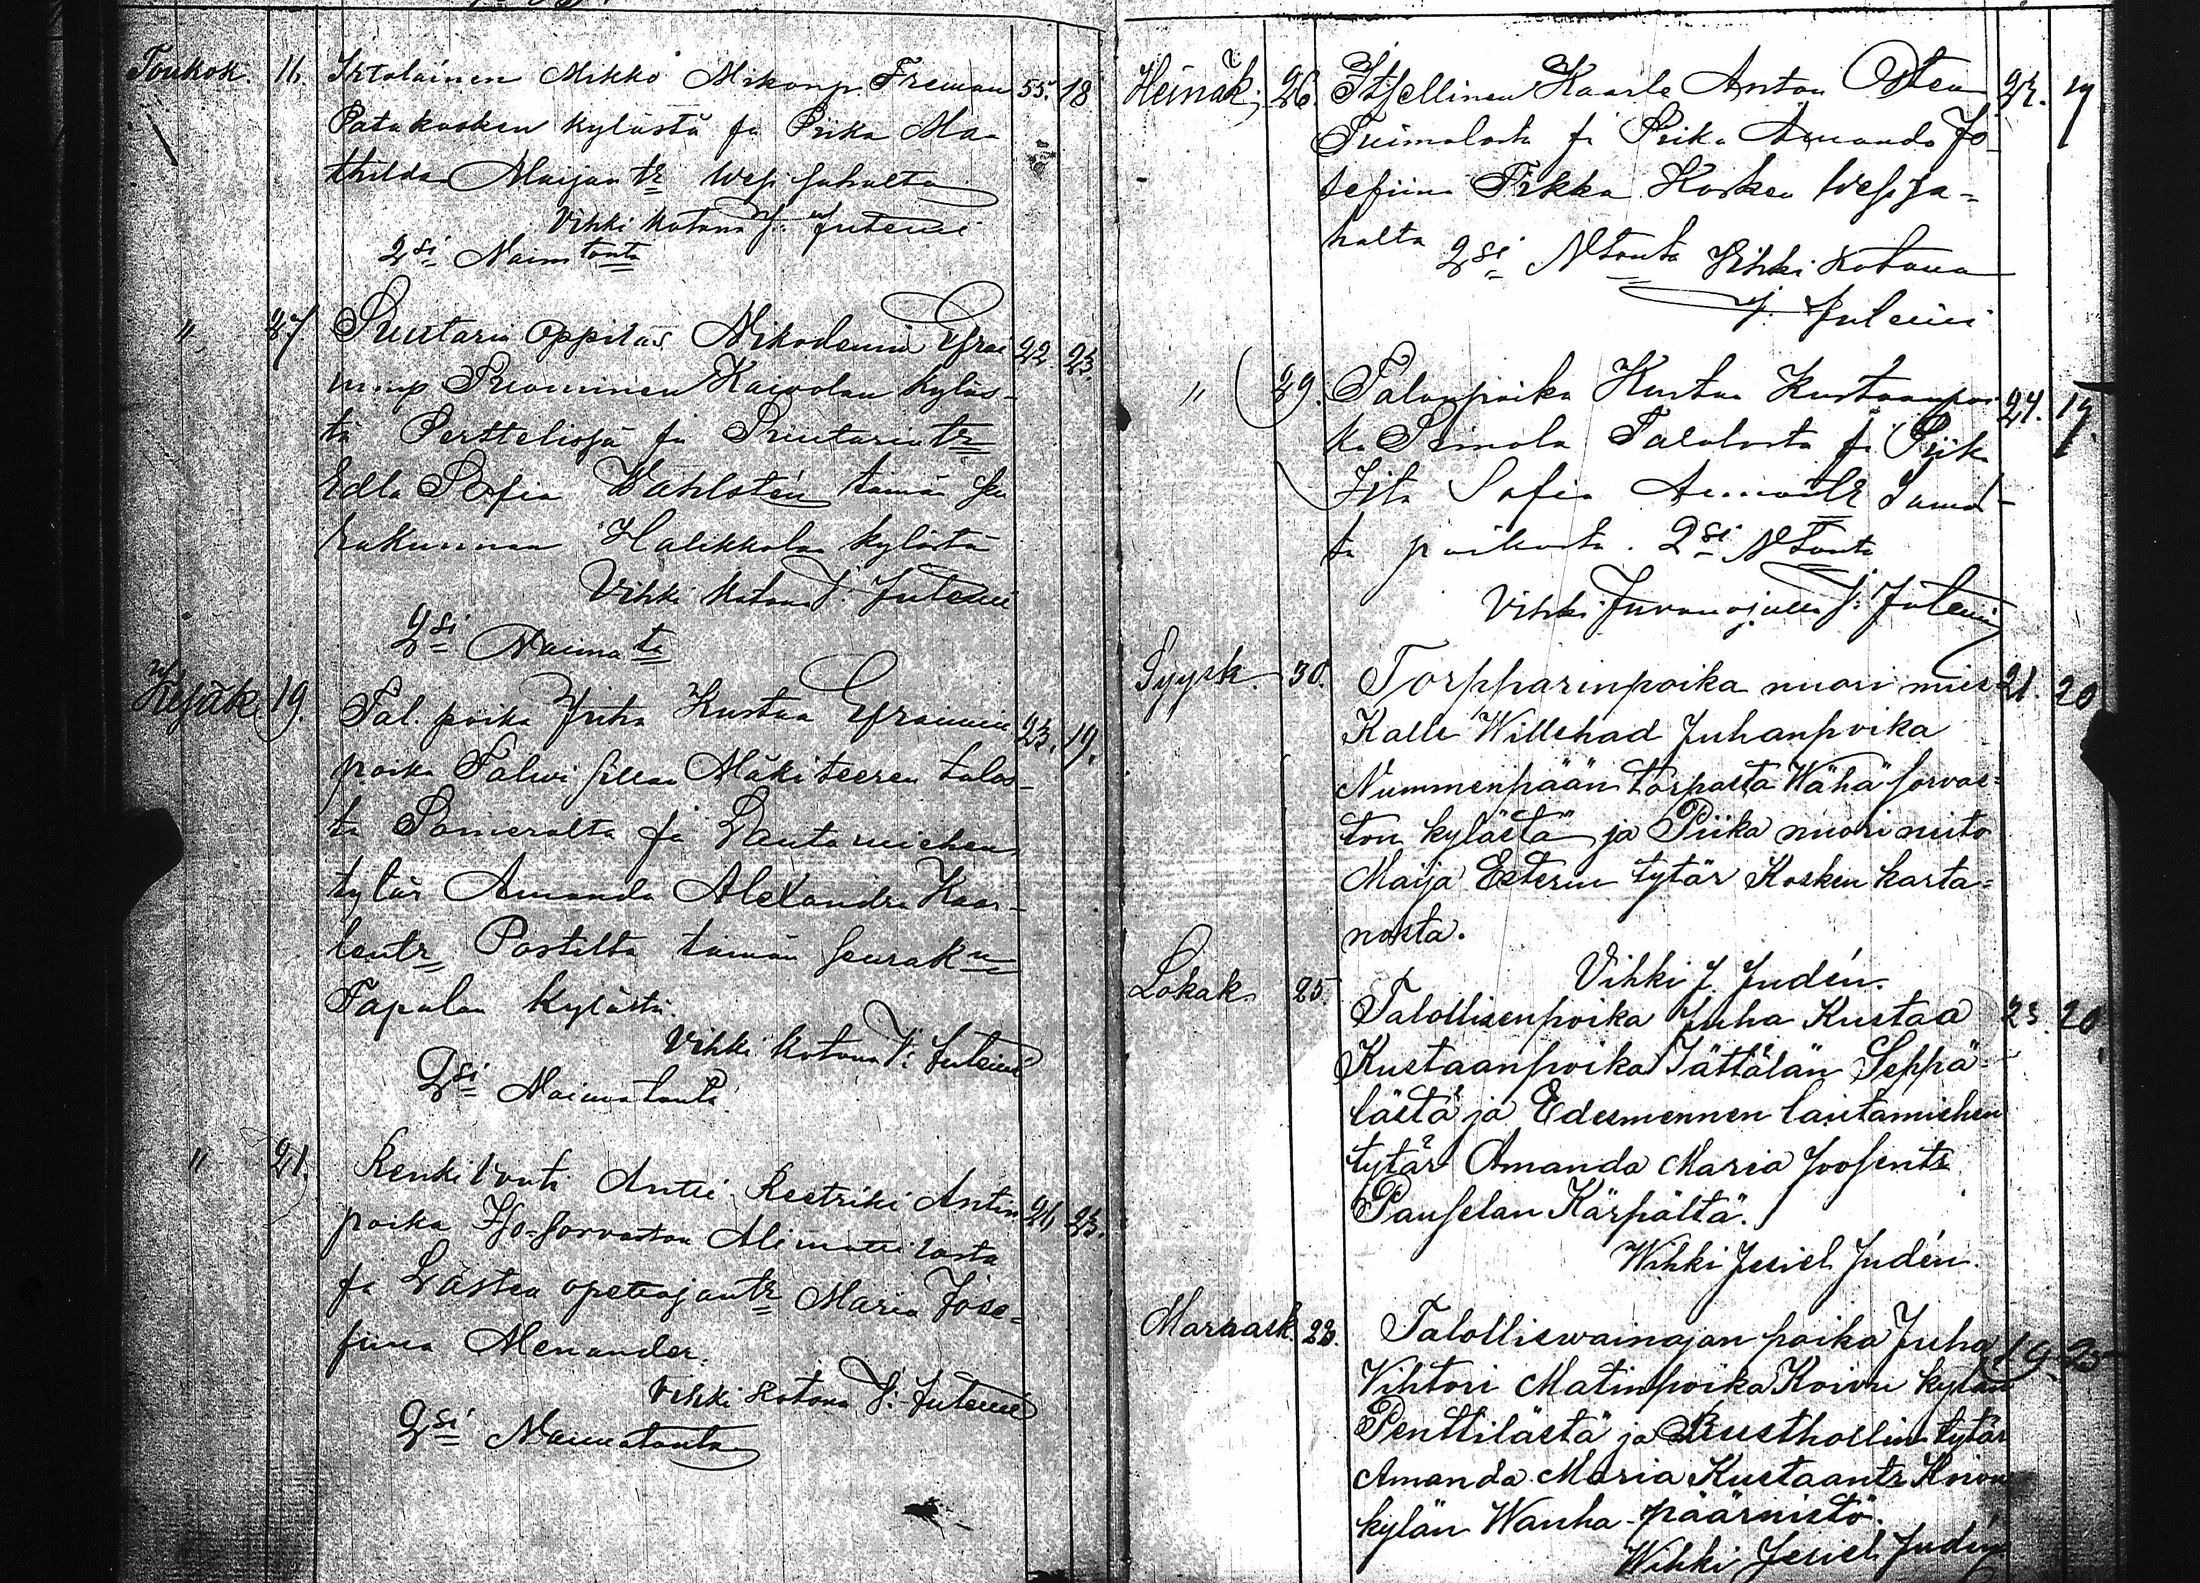 Toukok. 11. Itolainen Mikko Mikonp. Freman 55. 18
Patakosken kylästä ja Piika Ma-
thilda Maijantr Wesj. jahalta
Vihki kotona J. Juteini
2si Naimtonta
" 27. Suutarin oppilas Nikodemu Efrai 22 23.
minp Tuominen Kaivolan kyläs-
tä Perttelissä ja Suutarintr
Edla Sofia Wahlstén tämän seu
rakunnan Halikkolan kylästä
Vihki kotona J. Juteini
2si Naimata
Kesäk. 19. Tal. poika Juha Kustaa Efraimin 23. 19.
poika Talwisillan Mäkiteeren talos-
ta Somerolta ja Lautamiehen
tytär Amanda Alexandra Kaar-
lentr Postilta tämän seurakun
Tapalan kylästä.
Vihki kotona J. Juteini
2si Naimatonta
" 21. Renkivouti Antti Reetriki Antin 26 23.
poika Iso-Sorvaston Alimattilasta
ja Lasten opettajantr Maria Jose-
fiina Menander.
Vihki kotona J. Juteini
2si Naimatonta
Heinäk. 26. Itsellinen Kaarle Anton Osten 22. 19
Tuimalasta ja Piika Amanda Jo-
sefiina Pirkka Kosken Wesja-
halta
2si Ntonta Vihki kotona
J. Juteini
" 29. Talonpoika Kustaa Kustaanpoi 24. 19.
ka Talolasta ja Piika
Sofia Samas-
ta paikasta. 2si Ntonta
Vihki J. Juteini
Syysk. 30. Torpparinpoika nuori mies 21. 20
Kalle Willehad Juhanpoika
Nummenpään torpasta Wähä-Sorvas-
ton kylästä ja Piika nuori neito
Maija Esterin tytär Kosken karta-
nosta.
Vihki J. Judén.
Lokak. 25. Talollisenpoika Juha Kustaa 23. 20
Kustaanpoika Tättälän Seppä-
lästä ja Edesmennen lautamiehen
tytär Amanda Maria Joosentr
Pauselan Kärpältä.
Wihki Jesiel Judén.
Marrask. 22. Talolliswainajan poika Juha 19. 25
Vihtori Matinpoika Koivu kylän
Penttilästä ja Rusthollin tytär
Amanda Maria Kustaantr Koivu
kylän Wanha-päärnistö.
Wihki Jesiel Judén